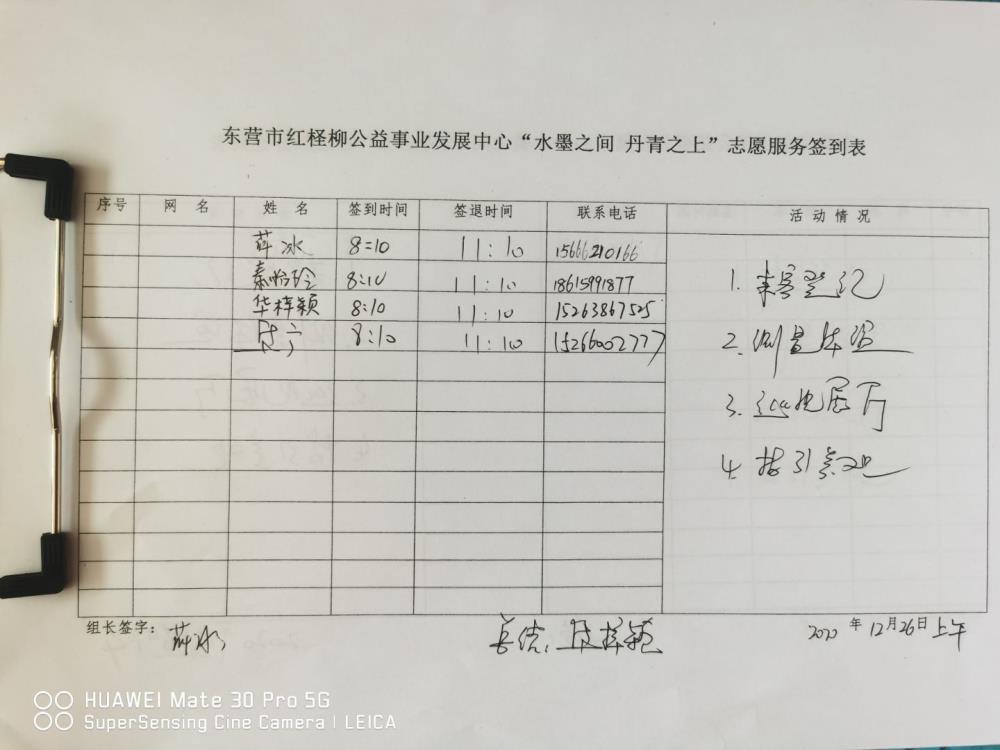 东营市红柽柳公益事业发展中心“水墨之间 丹青之上”志愿服务签到表
序号 网 名 姓 名 签到时间 签退时间 联系电话 活动情况
薛冰 8:10 11:10 15666210166
秦怡玲 8:10 11:10 18615991877
华梓颖 8:10 11:10 15263867525
8:10 11:10 15266002777
1. 来宾登记
2. 测量体温
3.
4. 指引参观
组长签字: 薛冰
2020 年 12月26日上午
HUAWEI Mate 30 Pro 5G
SuperSensing Cine Camera | LEICA